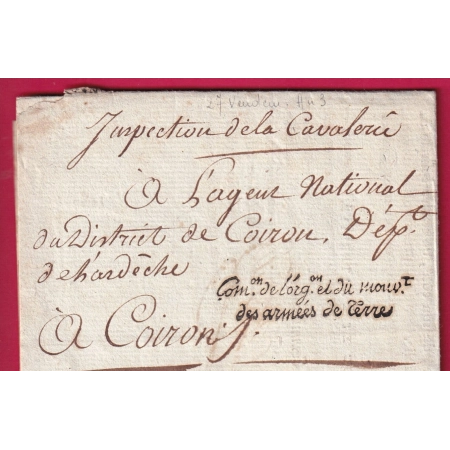 27 Vendem. An 3
Inspection de la Cavalerie
A L'agent National
du District de Coiron, Dép.t
de l'ardèche
Com.on de l'org.on et du mouv.t
des armées de Terre
A Coiron